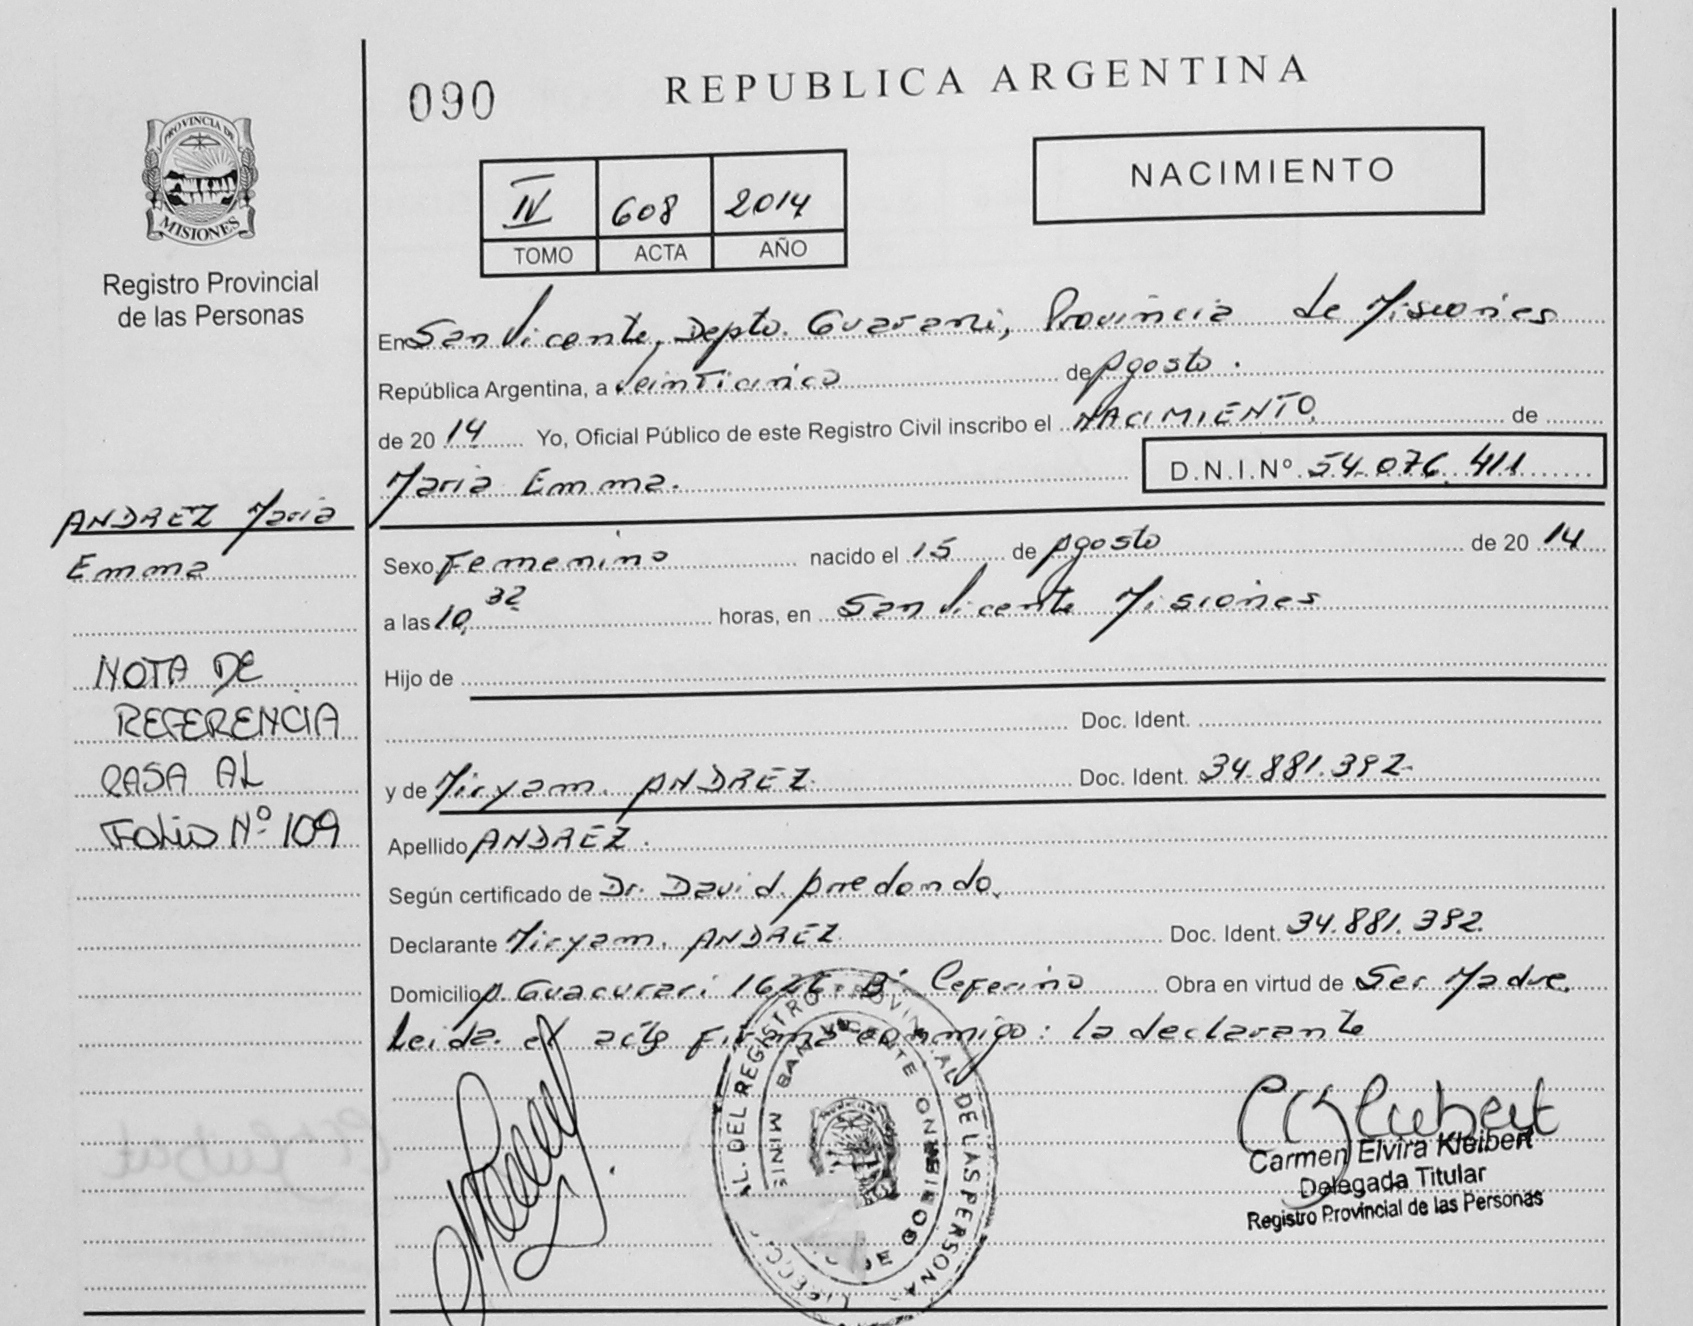 090
REPUBLICA ARGENTINA
PROVINCIA DE
MISIONES
Registro Provincial
de las Personas
IV 608 2014
TOMO ACTA AÑO
NACIMIENTO
En San Vicente, Depto. Guarani, Provincia de Misiones
República Argentina, a veinticinco de Agosto.
de 20 14 Yo, Oficial Público de este Registro Civil inscribo el NACIMIENTO de
Maria Emma. D.N.I.Nº 54.076.411
ANDREZ Maria
Emma
Sexo Femenino nacido el 15 de Agosto de 20 14
a las 10,32 horas, en San Vicente Misiones
NOTA DE
REFERENCIA
PASA AL
FOLIO Nº 109
Hijo de
Doc. Ident.
y de Miryam. ANDREZ. Doc. Ident. 34.881.392-
Apellido ANDREZ.
Según certificado de Dr. David Arredondo.
Declarante Miryam. ANDREZ Doc. Ident. 34.881.392.
Domicilio A. Guacurari 1626 Bº Ceferino Obra en virtud de Ser Madre.
Leida el acta firma conmigo: la declarante
Carmen Elvira Kleibert
Delegada Titular
Registro Provincial de las Personas
DEL REGISTRO PROVINCIAL DE LAS PERSONAS
VICENTE
DE GOBIERNO